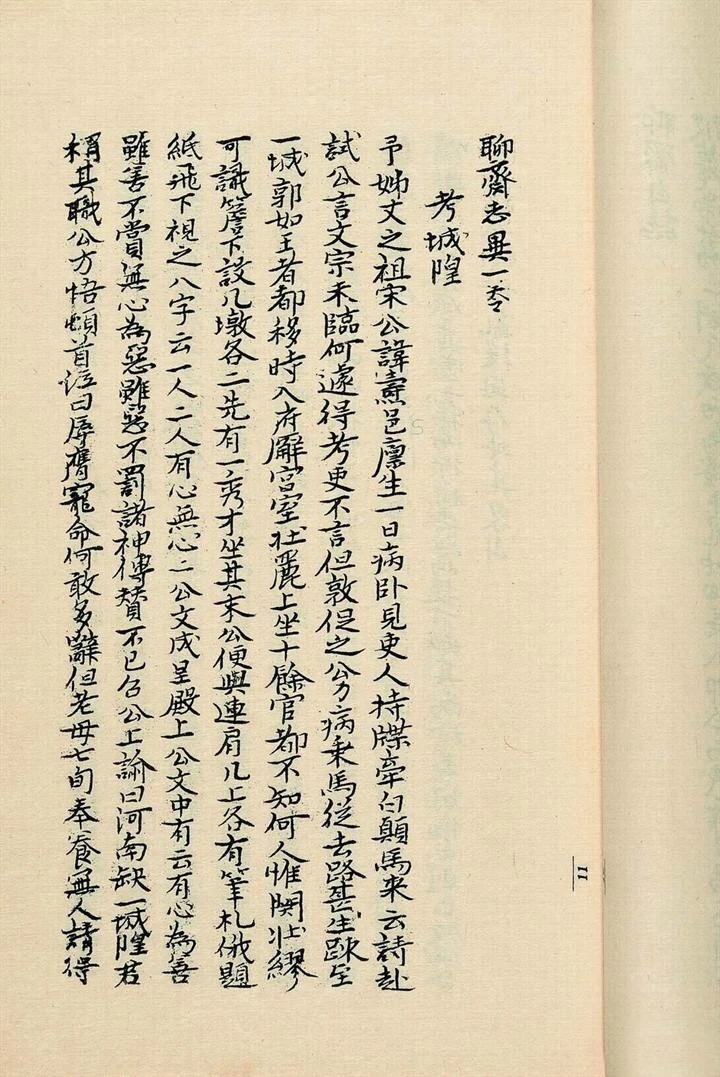 聊齋志異一卷
考城隍
予姊丈之祖宋公諱燾邑廩生一日病卧見吏人持牒牽白顛馬来云請赴
試公言文宗未臨何遽得考吏不言但敦促之公力病乗馬從去路甚生踈至
一城郭如王者都移時入府廨宮室壮麗上坐十餘官都不知何人惟関壮繆
可識簷下設几墩各二先有一秀才坐其末公便與連肩几上各有筆札俄題
紙飛下視之八字云一人二人有心無心二公文成呈殿上公文中有云有心為善
雖善不賞無心為惡雖惡不罰諸神傳贊不已召公上諭曰河南缺一城隍君
稱其職公方悟頓首泣曰辱膺寵命何敢多辭但老母七旬奉養無人請得
11